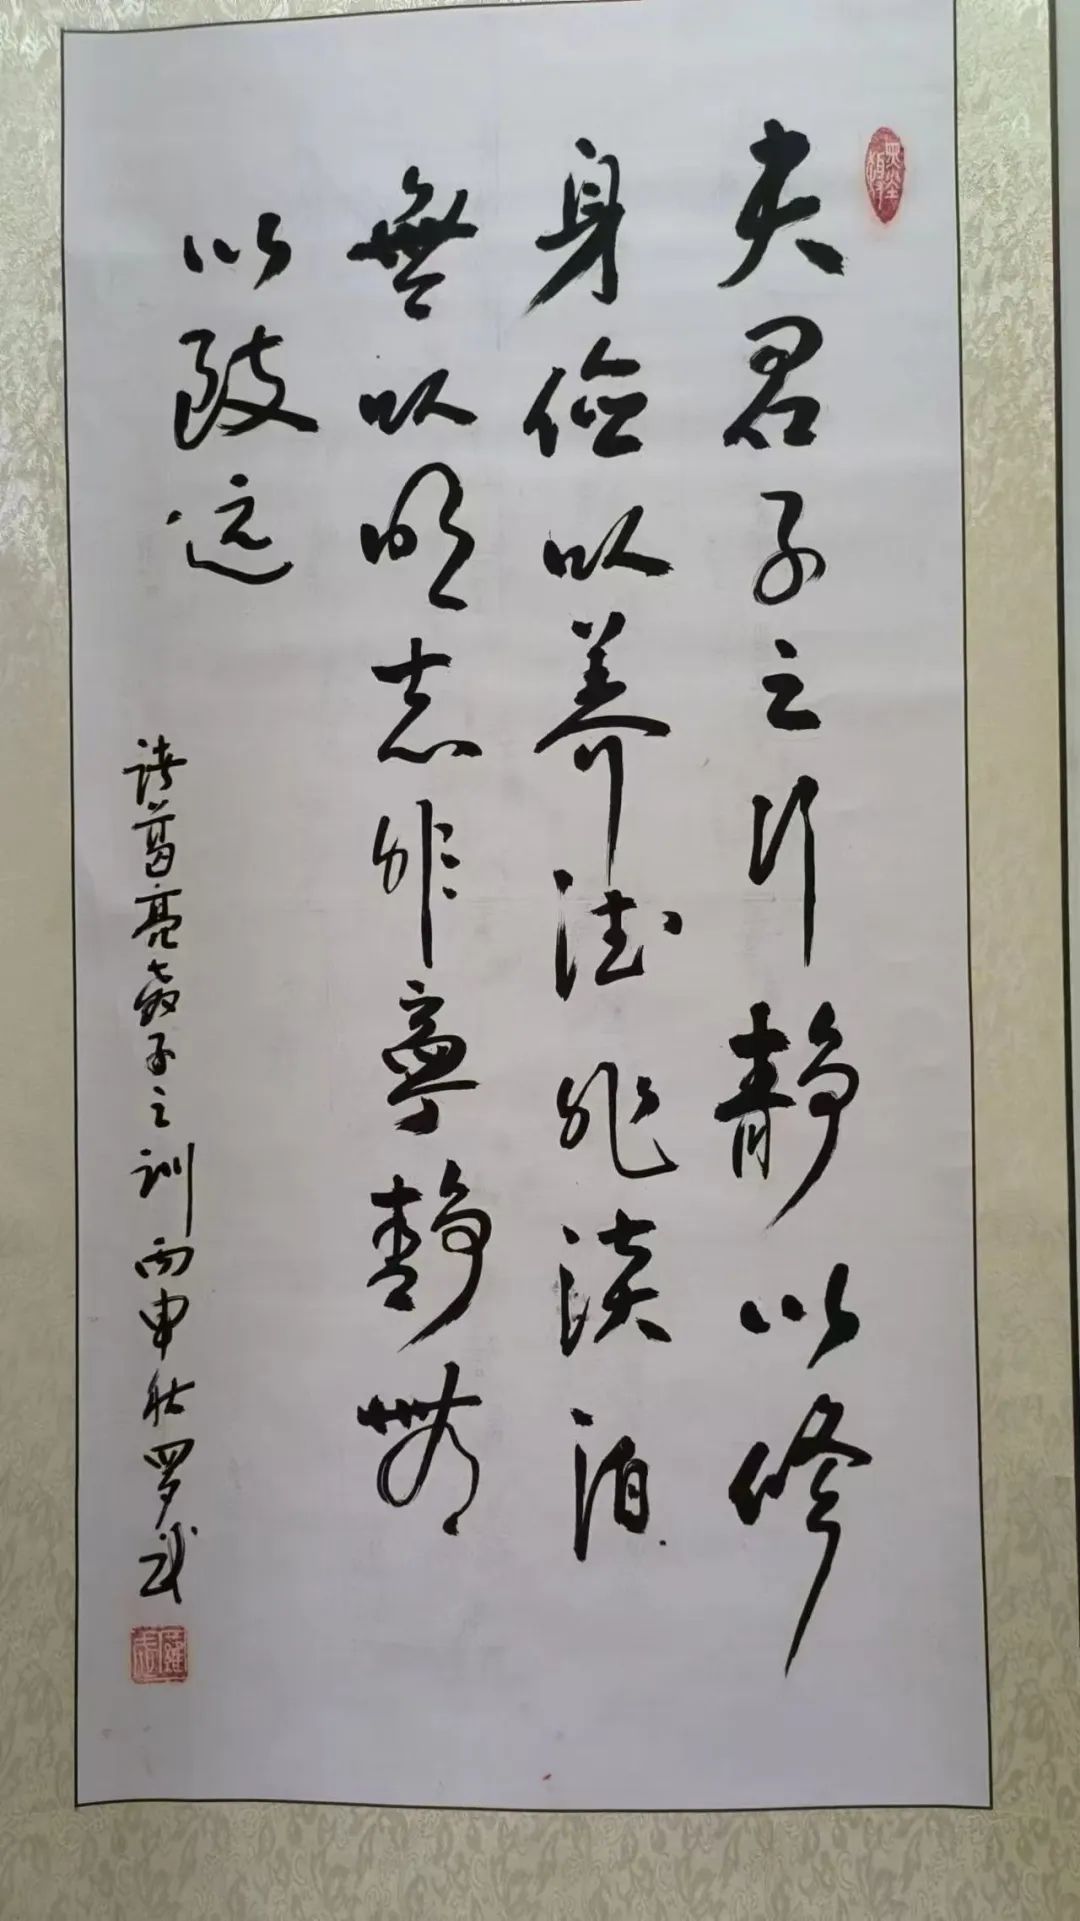 夫君子之行静以修
身俭以养德非淡泊
無以明志非寧静無
以致远
诸葛亮教子之训丙申秋罗武